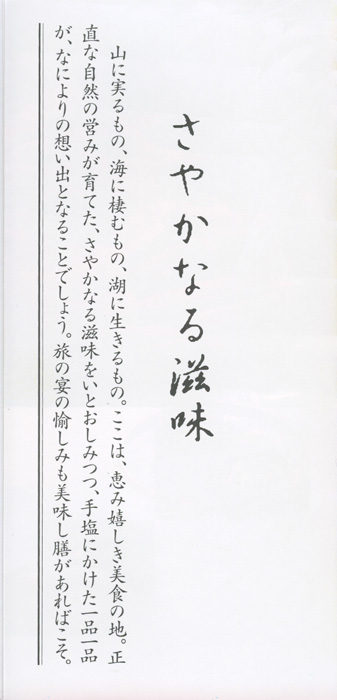 さやかなる滋味
山に実るもの、海に棲むもの、湖に生きるもの。ここは、恵み嬉しき美食の地。正
直な自然の営みが育てた、さやかなる滋味をいとおしみつつ、手塩にかけた一品一品
が、なによりの想い出となることでしょう。旅の宴の愉しみも美味し膳があればこそ。